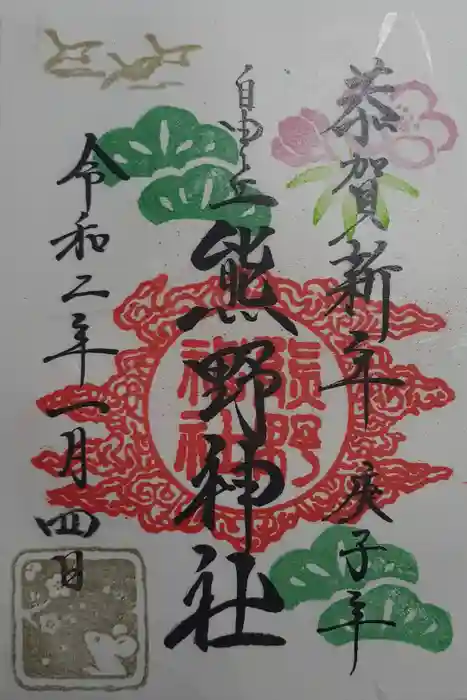 恭賀新年 庚子年
自由が丘 熊野神社
熊野
神社
令和二年一月四日